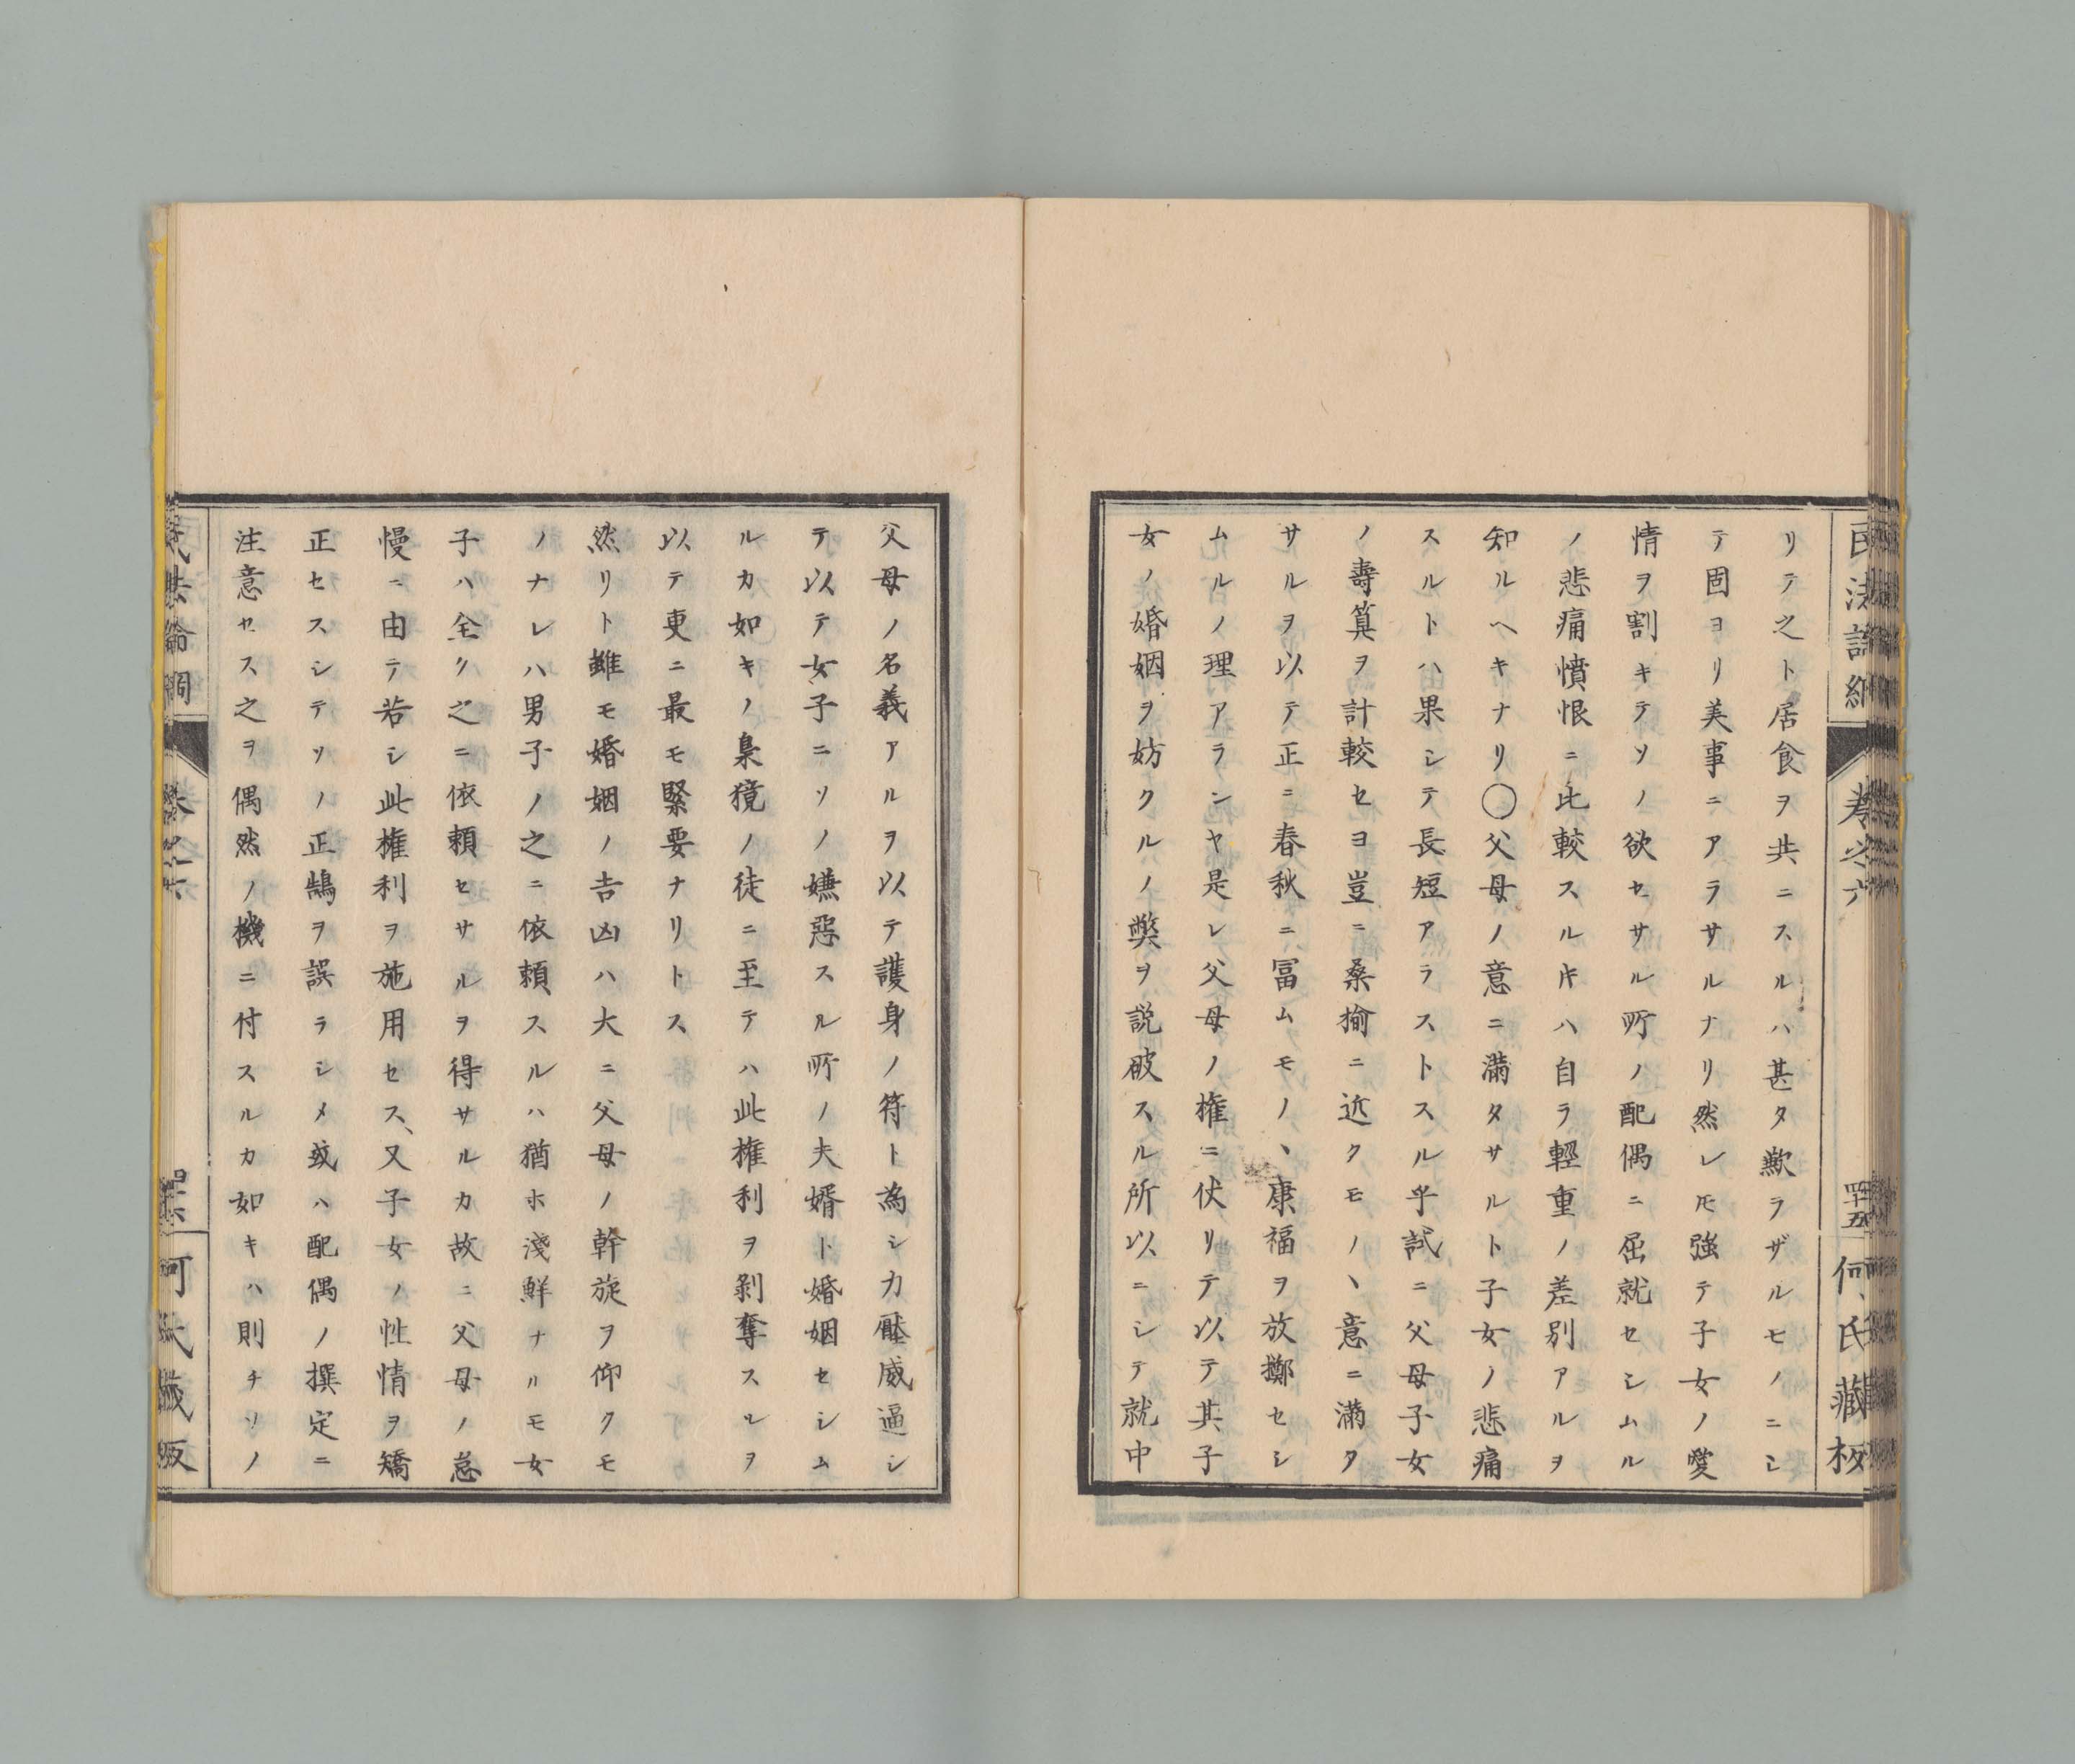 民法論綱 卷之六 四十五 何氏藏板
リテ之ト居食ヲ共ニスルハ甚タ歎ラザルモノニシ
テ固ヨリ美事ニアラサルナリ然レ𪜈強テ子女ノ愛
情ヲ割キテソノ欲セサル所ノ配偶ニ屈就セシムル
ノ悲痛憤恨ニ比較スル𪜈ハ自ラ輕重ノ差別アルヲ
知ルヘキナリ○父母ノ意ニ滿タサルト子女ノ悲痛
スルトハ果シテ長短アラストスル乎試ニ父母子女
ノ壽算ヲ計較セヨ豈ニ桑揄ニ近クモノヽ意ニ滿タ
サルヲ以テ正ニ春秋ニ冨ムモノヽ康福ヲ放擲セシ
ムルノ理アランヤ是レ父母ノ権ニ伏リテ以テ其子
女ノ婚姻ヲ妨クルノ弊ヲ説破スル所以ニシテ就中
父母ノ名義アルヲ以テ護身ノ符ト為シカ壓威逼シ
テ以テ女子ニソノ嫌惡スル所ノ夫婿ト婚姻セシム
ルカ如キノ梟獍ノ徒ニ至テハ此権利ヲ剝奪スルヲ
以テ更ニ最モ緊要ナリトス
然リト雖モ婚姻ノ吉凶ハ大ニ父母ノ幹旋ヲ仰クモ
ノナレハ男子ノ之ニ依頼スルハ猶ホ淺鮮ナルモ女
子ハ全ク之ニ依頼セサルヲ得サルカ故ニ父母ノ怠
慢ニ由テ若シ此権利ヲ施用セス、又子女ノ性情ヲ矯
正セスシテソノ正鵠ヲ誤ラシメ或ハ配偶ノ撰定ニ
注意セス之ヲ偶然ノ機ニ付スルカ如キハ則チソノ
民法論綱 卷之六 何氏藏板